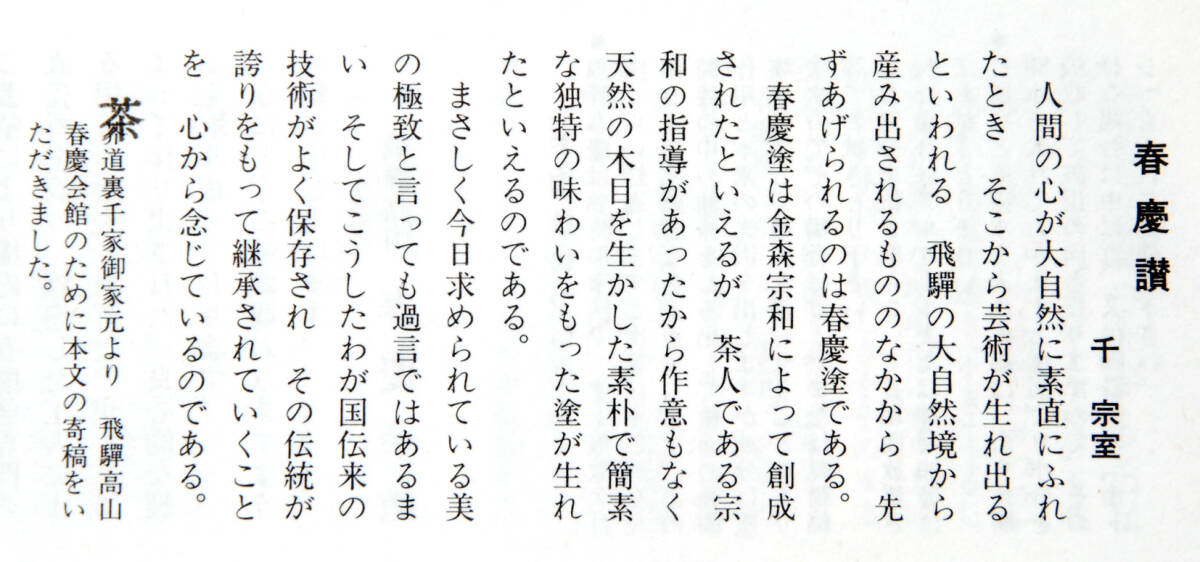 春慶讃
千 宗室
人間の心が大自然に素直にふれ
たとき そこから芸術が生れ出る
といわれる 飛驒の大自然境から
産み出されるもののなかから 先
ずあげられるのは春慶塗である。
春慶塗は金森宗和によって創成
されたといえるが 茶人である宗
和の指導があったから作意もなく
天然の木目を生かした素朴で簡素
な独特の味わいをもった塗が生れ
たといえるのである。
まさしく今日求められている美
の極致と言っても過言ではあるま
い そしてこうしたわが国伝来の
技術がよく保存され その伝統が
誇りをもって継承されていくこと
を 心から念じているのである。
茶道裏千家御家元より 飛驒高山
春慶会館のために本文の寄稿をい
ただきました。